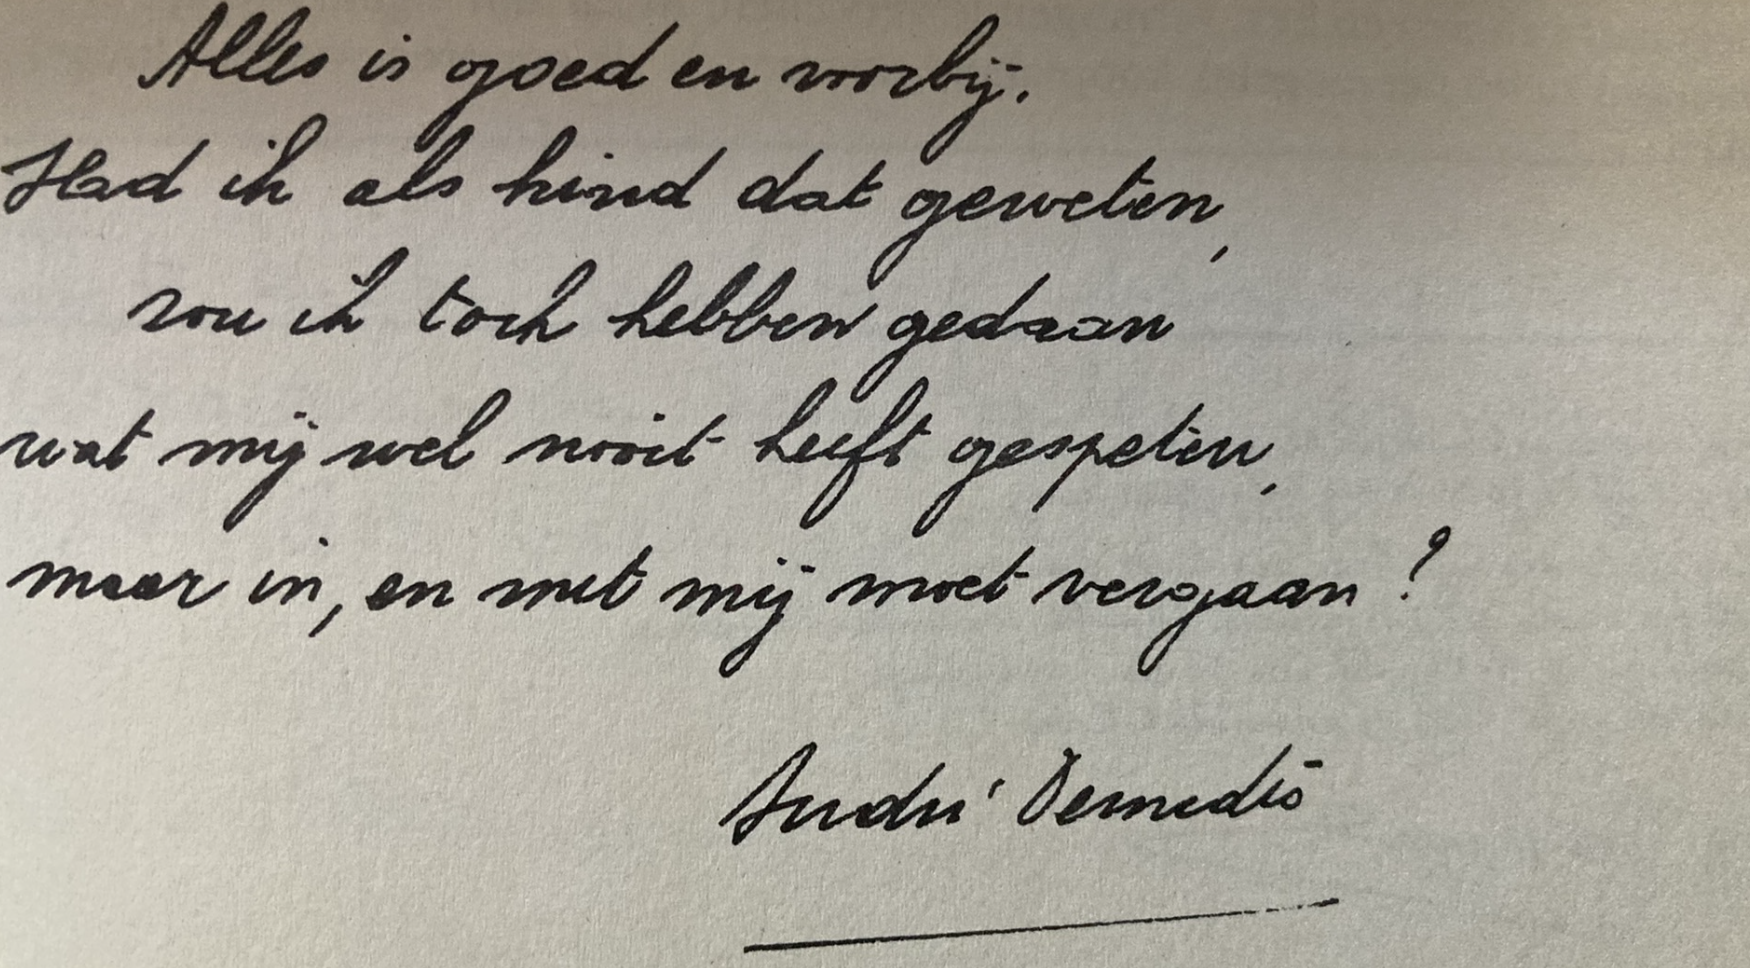 Alles is goed en voorbij.
Had ik als kind dat geweten,
zou ik toch hebben gedaan
wat mij wel nooit heeft gespeten,
maar in, en met mij moet vergaan?
André Demedts